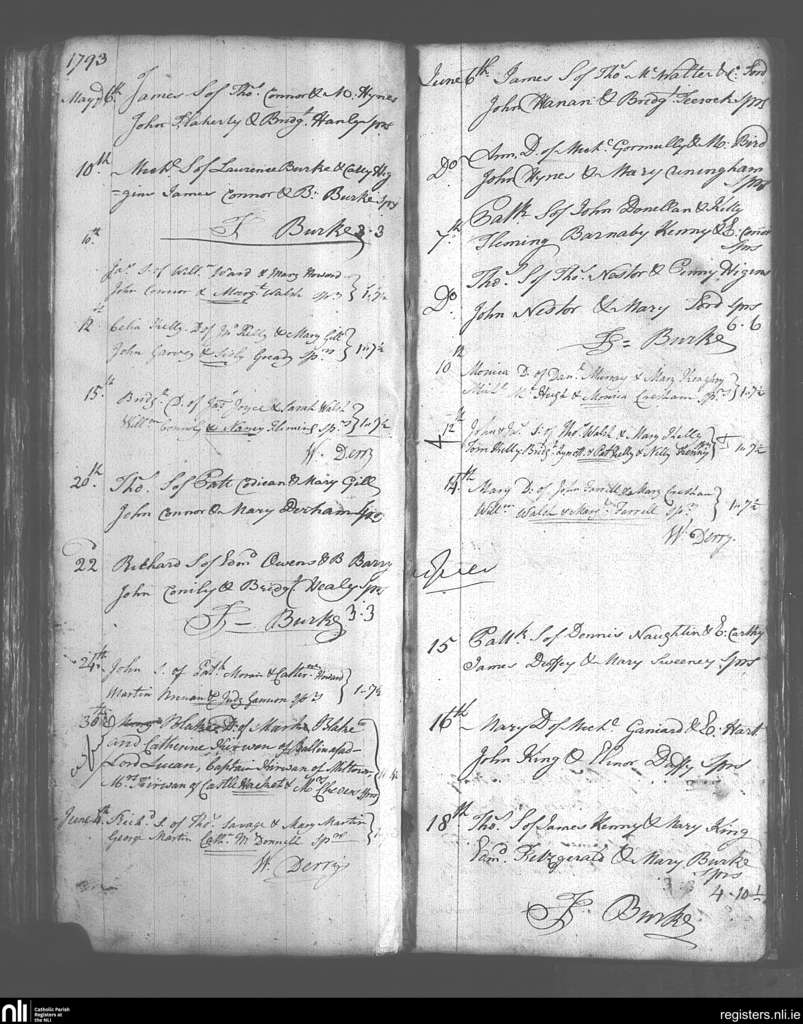 1793
May 6th James S of Thos. Connor & M. Hynes
John Flaherty & Bridgt. Hanly Sprs
10th Michl. S of Laurence Burke & Catty Hig
=gins James Connor & B: Burke Sprs
F Burke 3.3
10th
Jas. S. of Willm. Ward & Mary Howard
John Connor & Margt. Walsh Sprs } 1-7½
12th Celia Kelly D. of Wm. Kelly & Mary Gill
John Garvey & Sisly Gready Sprs } 1-7½
15th Bridgt. D. of Jas. Joyce & Sarah Walsh
Willm. Connoly & Nancy Fleming Sprs } 1-7½
W. Derry
20th Thos. S of Patt Codican & Mary Gill
John Connor & Mary Dorham Sprs
22d Richard S of Edmd. Owens & B Barry
John Conily & Bridgt. Healy Sprs
F= Burke 3.3
24th John S. of Patk. Moran & Catherine Howard
Martin Brenan & Judy Gannon Sprs } 1-7½
30th Blake D. of Mark Blake
and Catherine Kirwan of Ballinafad-
Lord Lucan, Captain Kirwan of
Mrs. Kirwan of Castle Hacket & Mrs. Cheevers Sprs
June 4th Richd. S. of Thos. Savage & Mary Martin
George Martin Cathn. McDonnell Sprs
W. Derry
June 6th James S of Thos. Mc. Walter & C: Ford
John Hanan & Bridgt. Sprs
Do Ann D. of Michl. Gormully & M: Bird
John Hynes & Mary Cuningham
Sprs
7th Patk S of John Donellan & Kitty
Fleming Barnaby Kenny & E: Conor
Sprs
Do Thos. S of Thos. Nestor & Penny Higins
John Nestor & Mary Ford Sprs
6.6
F= Burke
12
10 Monica D. of Danl. Murray & Mary Heagny
Michl. Mc Hugh & Monica Coesham Sprs } 1-7½
12th John & Js. S: of Thos. Walsh & Mary Kelly
Tom Kelly Bridgt. & Pat Kelly & Nelly Kenny Sprs } 1-7½
14th Mary D: of John Farrell & Mary Coesham
Willm. Walsh & Margt. Farrell Sprs } 1-7½
W. Derry.
15 Pattk S of Dennis Naughtin & E. Carthy
James Duffey & Mary Sweeney Sprs
16th Mary D of Michl. Ganiard & E. Hart
John King & Elinor Duffy Sprs
18th Thos. S of James Kenny & Mary King
Edmd. Fitzgerald & Mary Burke
Sprs
4-10½
F. Burke
nli Catholic Parish
Registers at
the NLI
registers.nli.ie